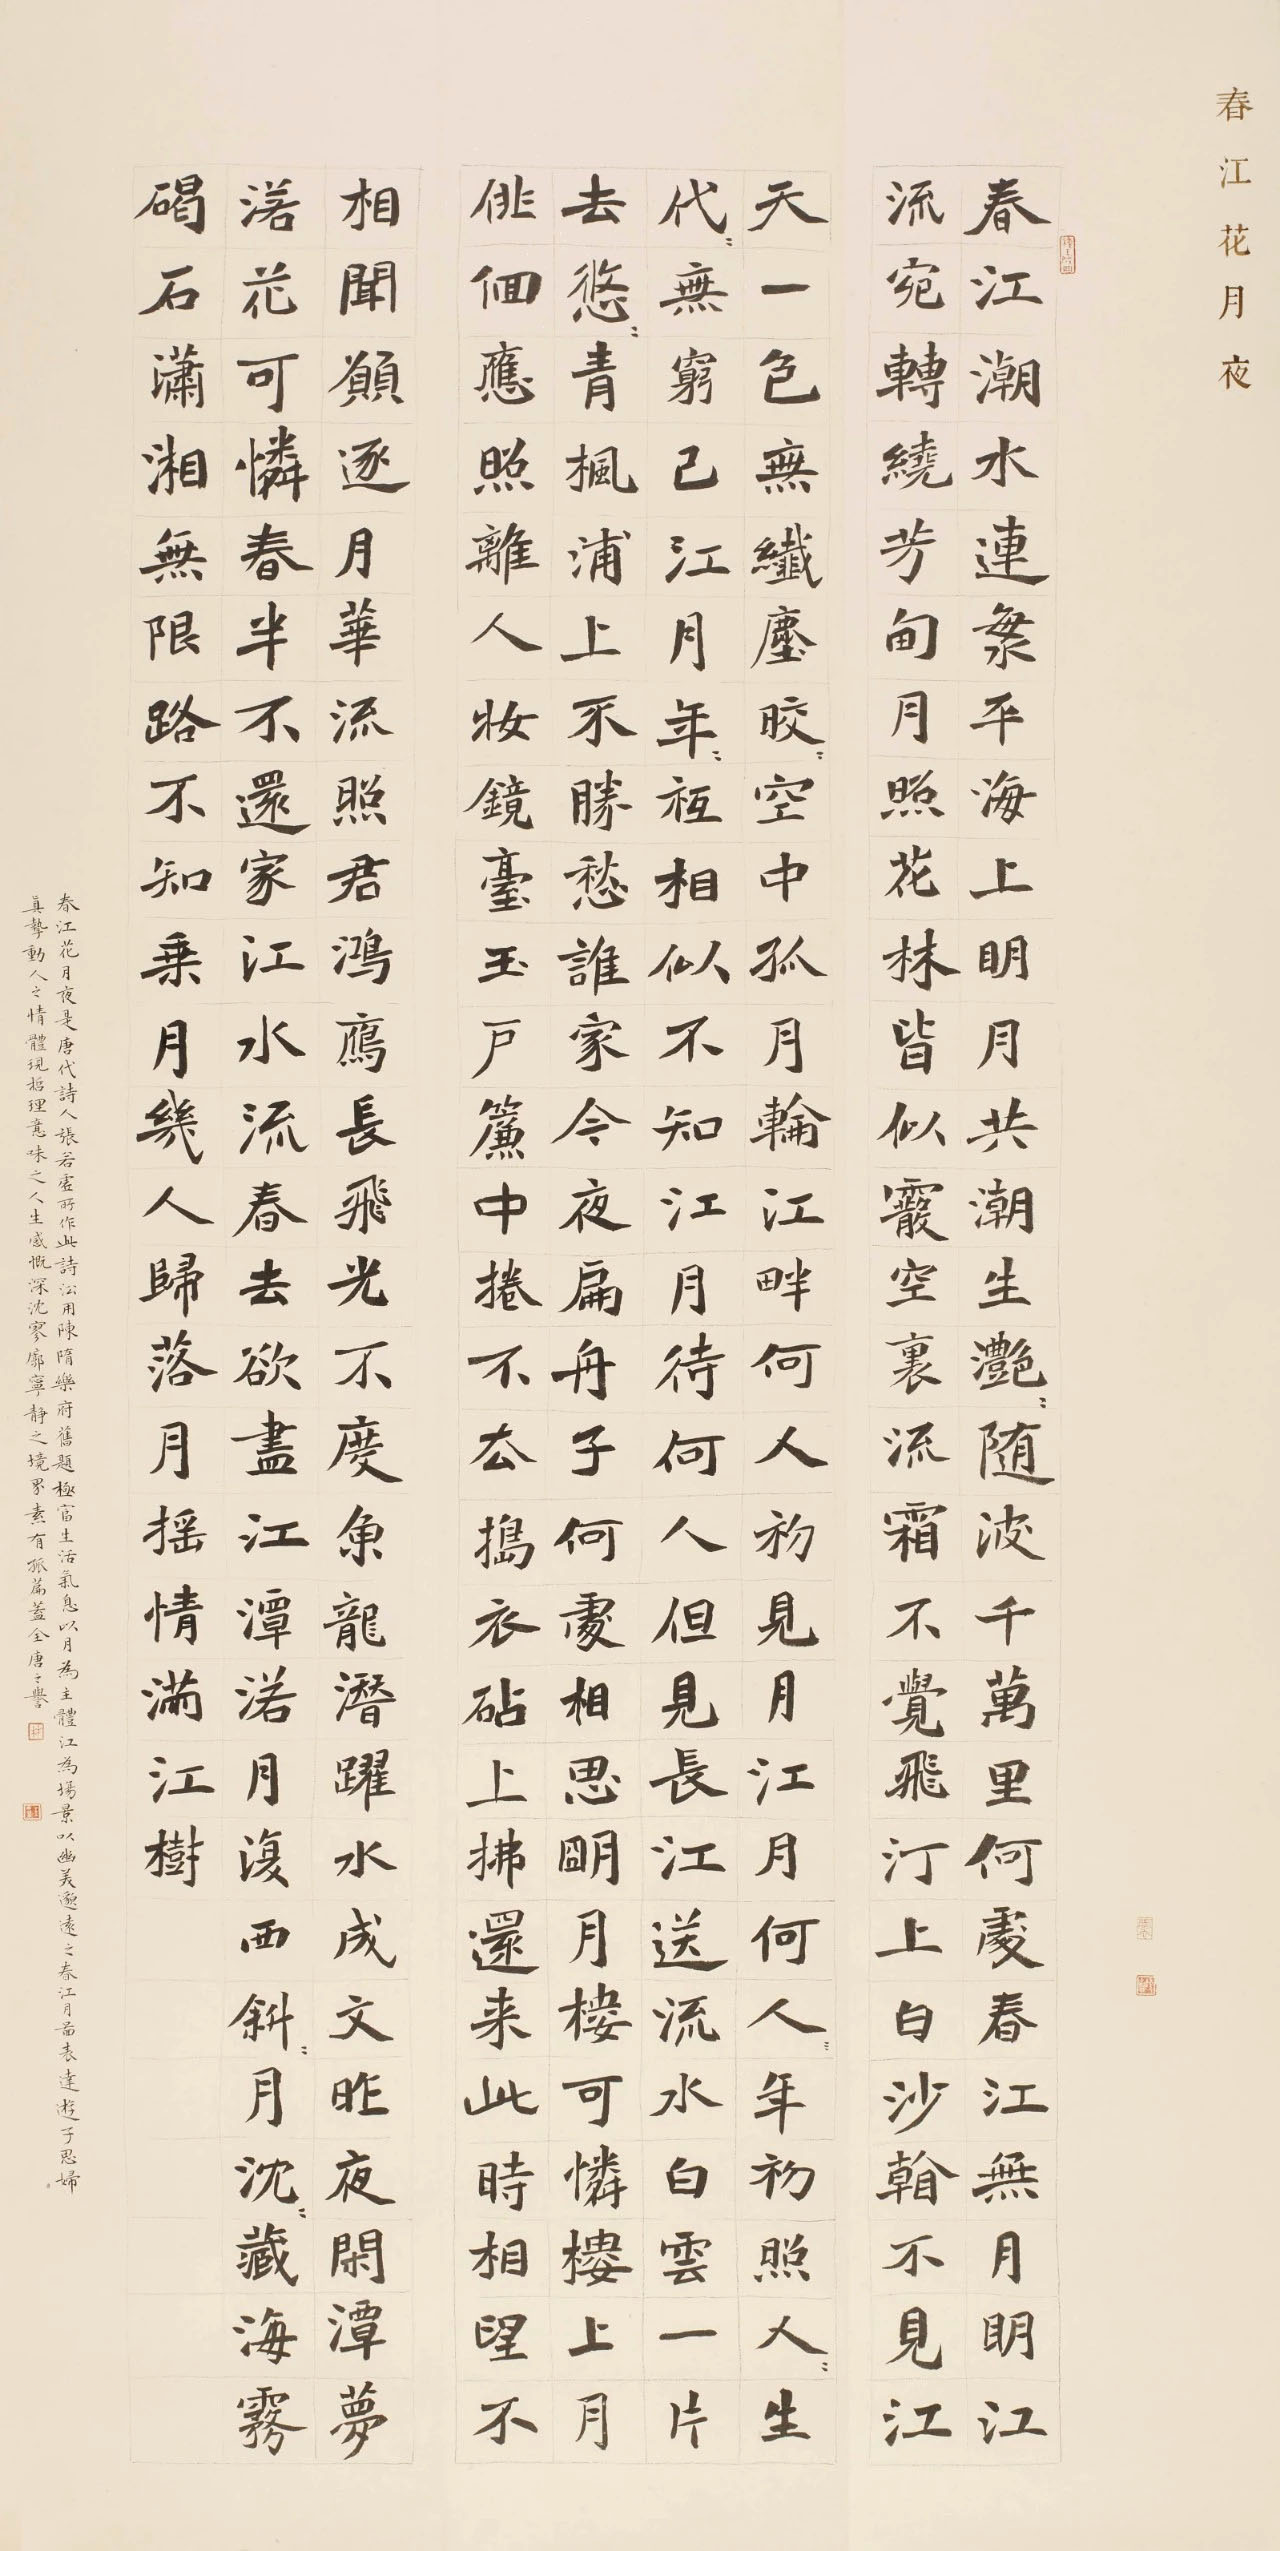 春江花月夜
春江潮水連海平海上明月共潮生灧〻随波千萬里何處春江無月明江
流宛轉繞芳甸月照花林皆似霰空裏流霜不覺飛汀上白沙看不見江
天一色無纖塵皎〻空中孤月輪江畔何人初見月江月何人〻年初照人〻生
代〻無窮已江月年〻祗相似不知江月待何人但見長江送流水白雲一片
去悠〻青楓浦上不勝愁誰家今夜扁舟子何處相思明月樓可憐樓上月
俳佪應照離人妝鏡臺玉戶簾中捲不去搗衣砧上拂還来此時相望不
相聞願逐月華流照君鴻鴈長飛光不度魚龍潛躍水成文昨夜閑潭夢
落花可憐春半不還家江水流春去欲盡江潭落月復西斜〻月沈〻藏海霧
碣石瀟湘無限路不知乗月幾人歸落月摇情滿江樹
春江花月夜是唐代詩人張若虛所作此詩沿用陳隋樂府舊題極富生活氣息以月為主體江為場景以幽美邈遠之春江月啚表達遊子思婦
真摯動人之情體現哲理意味之人生感慨深沈寥廓寧静之境界素有孤篇蓋全唐之譽